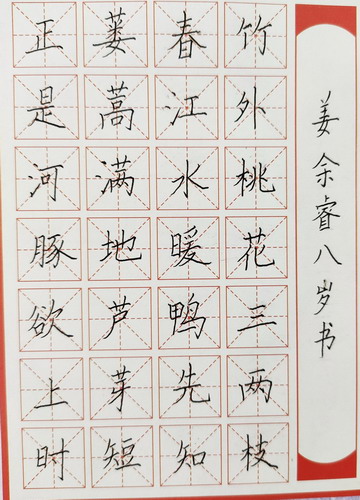 竹外桃花三两枝
春江水暖鸭先知
蒌蒿满地芦芽短
正是河豚欲上时
姜余睿八岁书